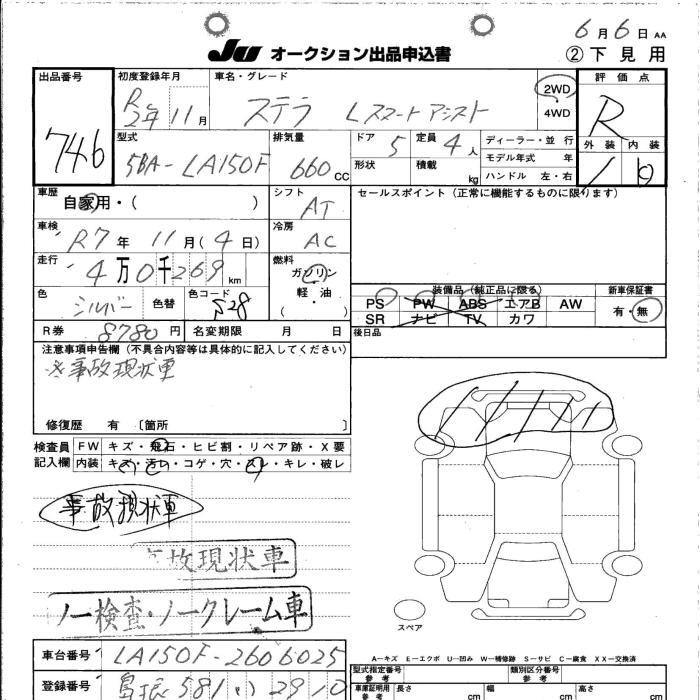 6月6日 AA
JU オークション出品申込書 ②下見用
出品番号 746
初度登録年月 R2年11月
車名・グレード ステラ Lスマートアシスト
2WD
4WD
評価点 R
外装 内装
型式 5BA-LA150F
排気量 660cc
ドア 5
定員 4人
形状
積載 kg
ディーラー・並行
モデル年式 年
ハンドル 左・右
車歴 自家用・( )
シフト AT
セールスポイント(正常に機能するものに限ります)
車検 R7年11月(4日)
冷房 AC
走行 4万0千269km
燃料 ガソリン
軽・油
( ・ )
色 シルバー 色替 色コード S28
装備品(純正品に限る)
新車保証書
PS PW ABS エアB AW
有・無
SR ナビ TV カワ
R券 8780円 名変期限 月 日
後日品
注意事項申告欄(不具合内容等は具体的に記入してください)
※事故現状車
修復歴 有 〔箇所 〕
検査員 FW キズ・飛石・ヒビ割・リペア跡・X要
記入欄 内装 キズ・汚れ・コゲ・穴・スレ・キレ・破レ
事故現状車
事故現状車
ノー検査・ノークレーム車
スペア
A…キズ E…エクボ U…凹み W…補修跡 S…サビ C…腐食 XX…交換済
車台番号 LA150F-2606025
型式指定番号 参考
類別区分番号 参考
登録番号 581 い 2910
車庫証明用 参考 長さ cm 幅 cm 高さ cm